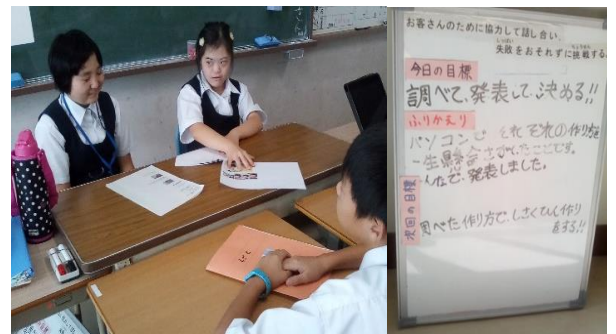 お客さんのために協力して話し合い、
失敗をおそれずに挑戦する。
しっぱい
ちょうせん
今日の目標
調べて、発表して、決める!!
ふりかえり
パソコンで それぞれの作り方を
一生懸命さがしたことです。
んなで発表しました。
次回の目標
調べた作り方で、しさくひん作り
をする!!